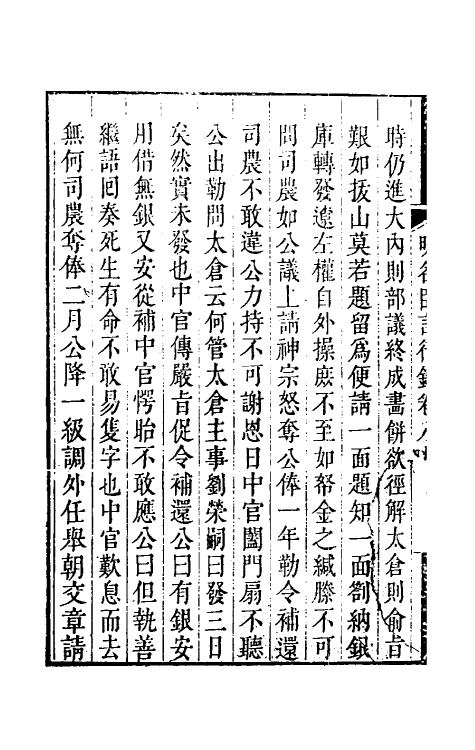 時仍進大內則部議終成畫餅欲徑解太倉則俞旨
艱如拔山莫若題留爲便請一面題知一面劄納銀
庫轉發遼左權自外操庶不至如帑金之緘縢不可
問司農如公議上請神宗怒奪公俸一年勒令補還
司農不敢違公力持不可謝恩日中官闔門扇不聽
公出勒問太倉云何管太倉主事劉榮嗣曰發三日
矣然實未發也中官傳嚴旨促令補還公曰有銀安
用借無銀又安從補中官愕眙不敢應公曰但執善
繼語回奏死生有命不敢易隻字也中官歎息而去
無何司農奪俸二月公降一級調外任舉朝交章請